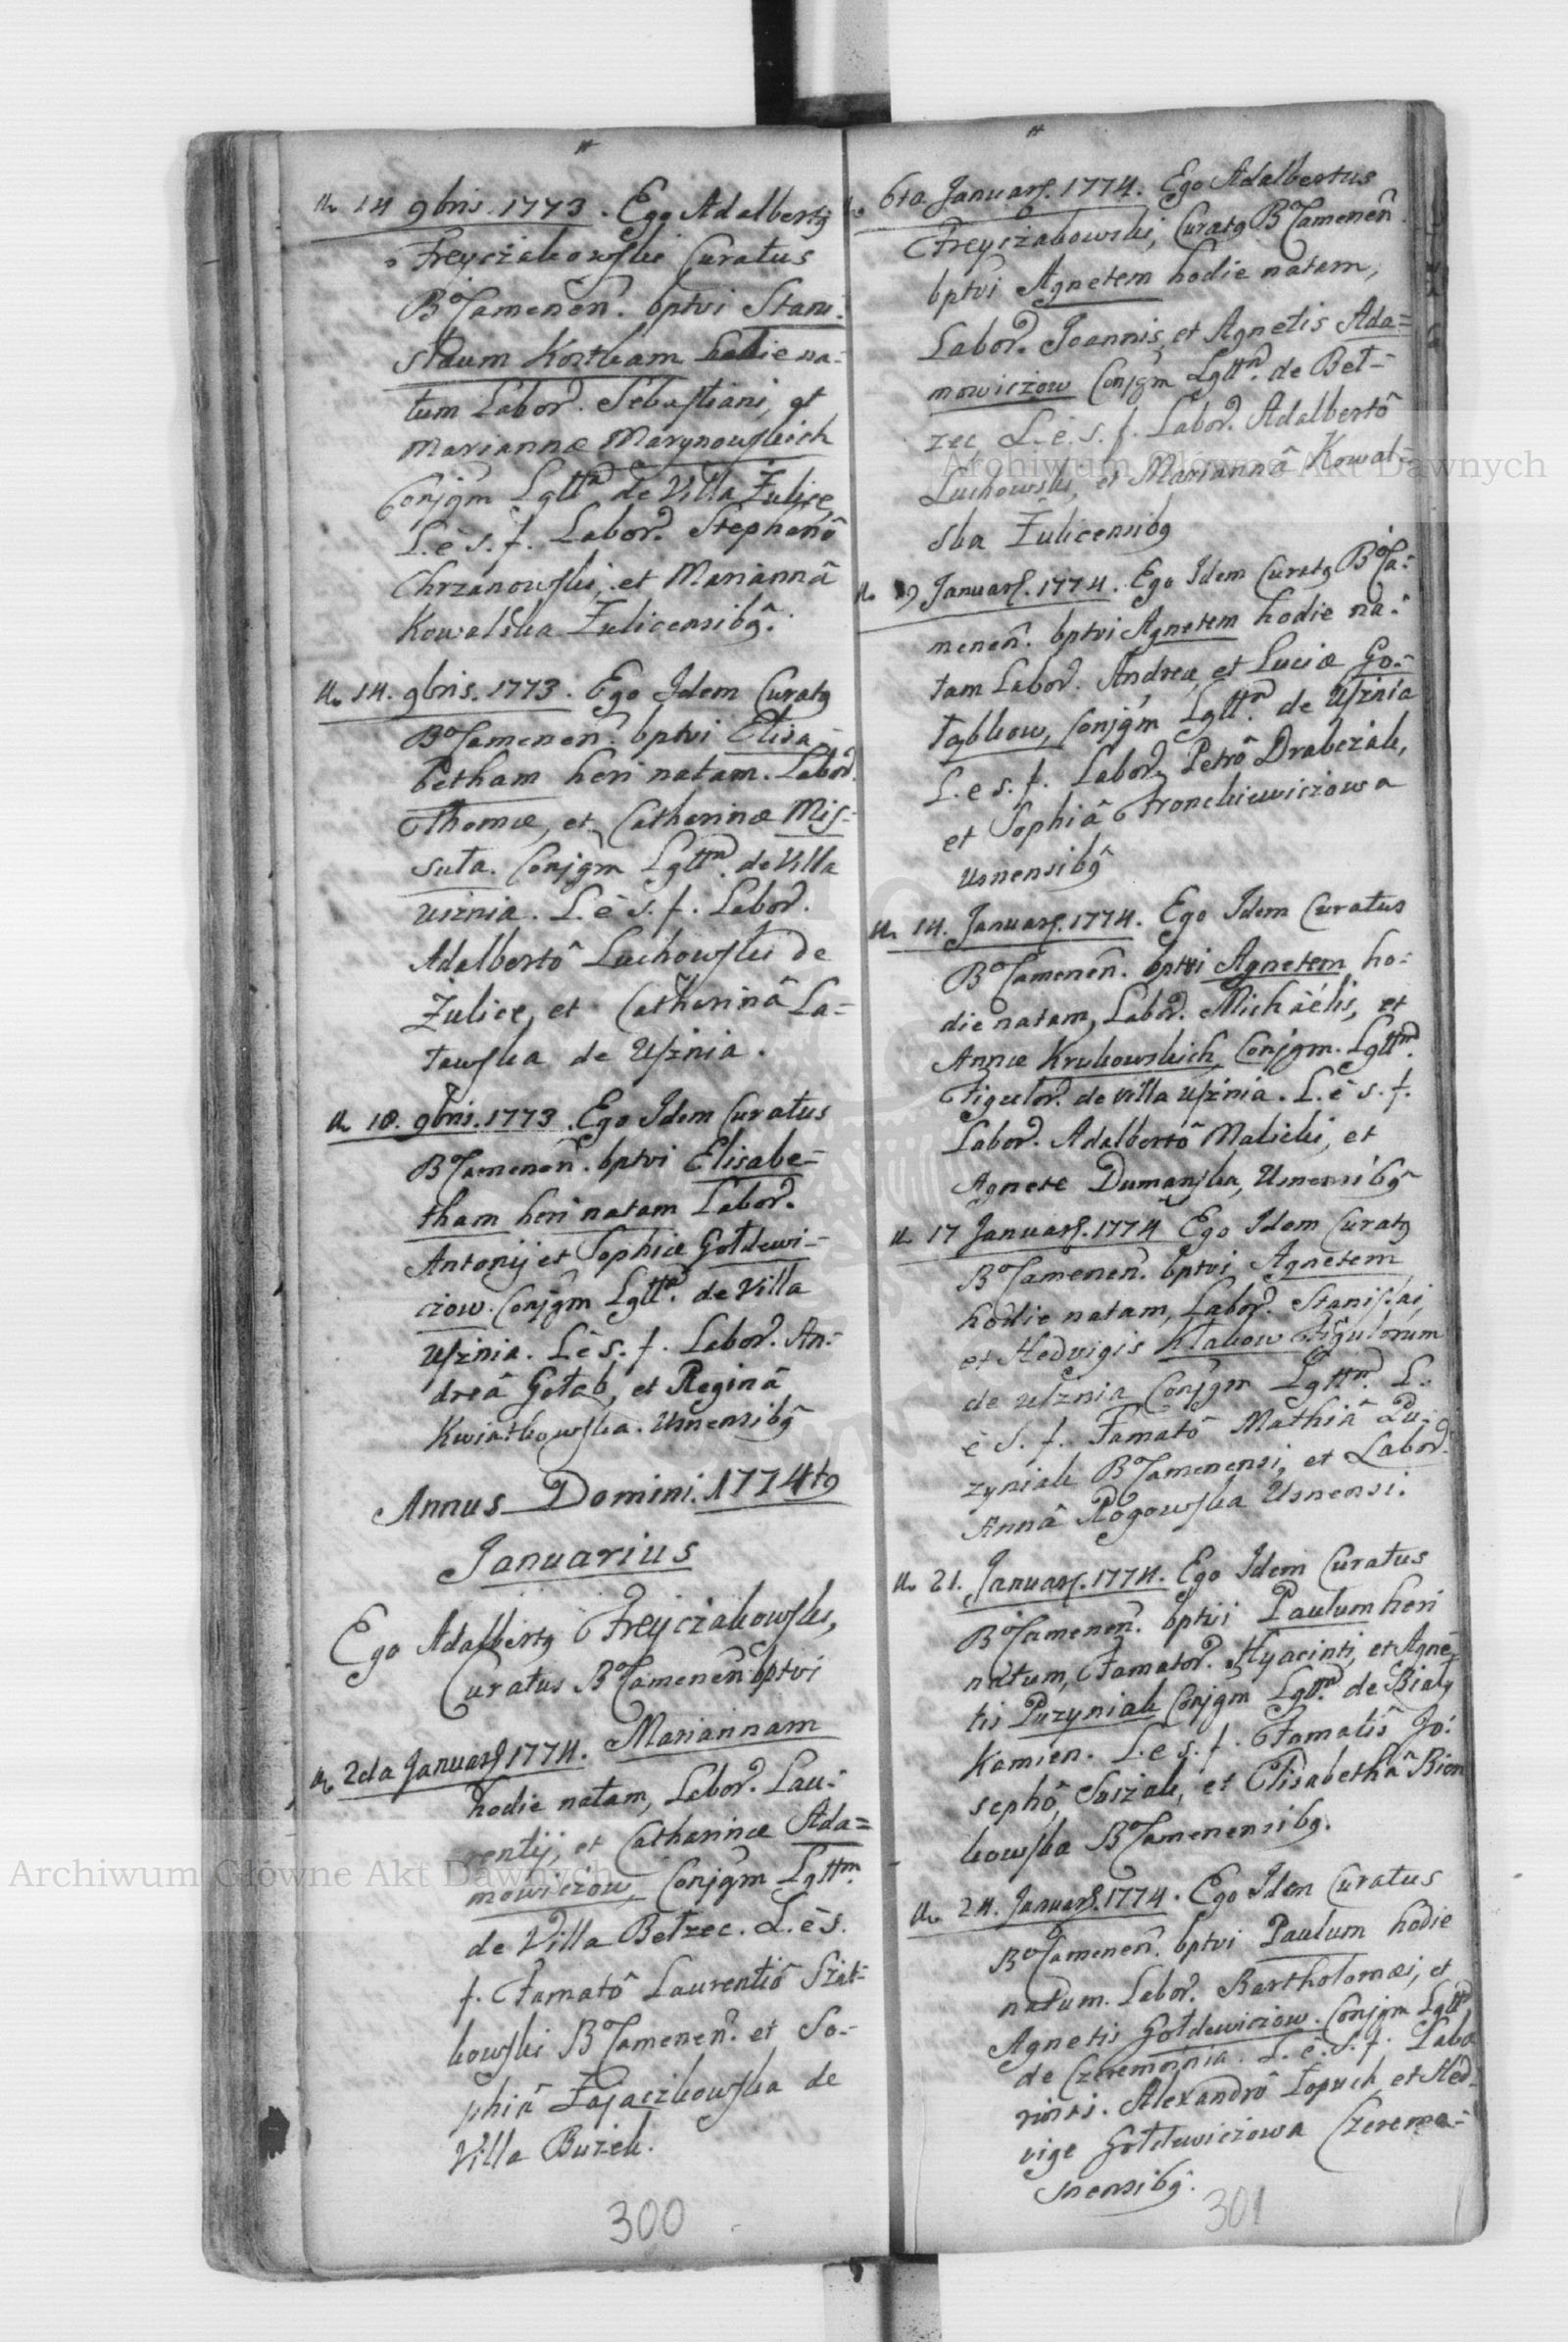 14 9bris. 1773. Ego Adalbertq
Freyczakowski Curatus
BoCamenen. bptvi Stani-
slaum Kostkam hodie na-
tum Labor. Sebastiani, et
Mariannæ Marynowskich
Conjgm Lgttm de Villa Żulice,
L. è s. f. Labor. Stephanô
Chrzanowski, et Mariannâ
Kowalska Żulicensibq.
14. 9bris. 1773. Ego Idem Curatq
BoCamenen. bptvi Elisa-
betham heri natam. Labor.
Thomæ, et Catharinæ Mis-
suta. Conjgm Lgttm. de Villa
Usznia. L. è s. f. Labor.
Adalbertô Luchowski de
Żulice, et Catharinâ La-
tawska de Usznia.
18. 9bris. 1773. Ego Idem Curatus
BoCamenen. bptvi Elisabe-
tham heri natam Labor.
Antonij et Sophiæ Gołdewi-
czow. Conjgm Lgttm. de Villa
Usznia. L. è s. f. Labor. An-
dreâ Gołab, et Reginâ
Kwiatkowska. Usnensibq
Annus Domini. 1774tq
Januarius
Ego Adalbertq Freyczakowski,
Curatus BoCamenen bptvi
2da Januarij 1774. Mariannam
hodie natam, Labor. Lau-
rentij, et Catharinæ Ada=
mowiczow Conjgm Lgttm.
de Villa Bełzec. L. è s.
f. Famatô Laurentiô Szat-
kowski BoCamenen. et So-
phiâ Zajaczkowska de
Villa Buzek.
300
6ta Januarij. 1774. Ego Adalbertus
Freyczakowski, Curatq BoCamenen
bptvi Agnetem hodie natam,
Labor. Joannis, et Agnetis Ada=
mowiczow Conjgm Lgttm. de Beł-
zec L. è. s. f. Labor. Adalbertô
Luchowski, et Mariannâ Kowal-
ska Żulicensibq
9 Januarij. 1774. Ego Idem Curatq BoCa-
menen. bptvi Agnetem hodie na-
tam Labor. Andreæ, et Luciæ Go-
łąbkow, Conjgm Lgttm. de Usznia
L. e s. f. Labor. Petrô Drabczak,
et Sophiâ Fronckiewiczowa
Usnensibq
14. Januarij. 1774. Ego Idem Curatus
BoCamenen. bptvi Agnetem ho-
die natam, Labor. Michaëlis, et
Annæ Krukowskich, Conjgm. Lgttm.
Figulor. de villa Usznia. L. è s. f.
Labor. Adalbertô Malicki, et
Agnete Dumanska, Usnensibq
17 Januarij. 1774 Ego Idem Curatq
BoCamenen. bptvi Agnetem
hodie natam, Labor. Stanislai,
et Hedvigis Figulorum
de Usznia Conjgm Lgttm. L.
è S. f. Famatô Mathiâ Pu-
zyniak BoCamenensi, et Labor.
Annâ Rogowska Usnensi.
21. Januarij. 1774. Ego Idem Curatus
BoCamenen. bptvi Paulum heri
natum, Famator. Hyacinti, et Agne-
tis Puzyniak Conjgm Lgttm. de Biały
Kamien. L. e s. f. Famatis Jo-
sephô, Suszak, et Elisabethâ Bien
kowska BoCamenensibq.
24. Januarij. 1774. Ego Idem Curatus
BoCamenen. bptvi Paulum hodie
natum. Labor. Bartholomæi, et
Agnetis Gołdewiczow. Conjgm Lgttm
de Czeremosnia. L. è. S. f. Labo
riosi. Alexandrô Łopuch et Hed-
vige Gołdewiczowa Czeremo-
snensibq.
301
Archiwum Główne Akt Dawnych
Archiwum Główne Akt Dawnych